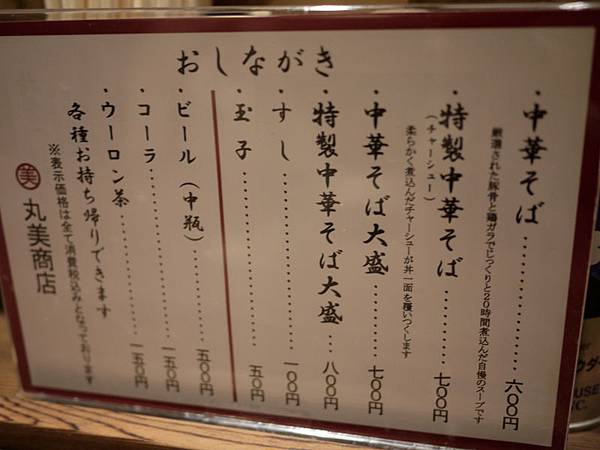 おしながき
・中華そば………六〇〇円
厳選された豚骨と鶏ガラでじっくりと20時間煮込んだ自慢のスープです
・特製中華そば………七〇〇円
(チャーシュー)
柔らかく煮込んだチャーシューが丼一面を覆いつくします
・中華そば大盛………七〇〇円
・特製中華そば大盛…八〇〇円
・すし………一〇〇円
・玉子………五〇円
・ビール(中瓶)………五〇〇円
・コーラ………一五〇円
・ウーロン茶………一五〇円
各種お持ち帰りできます
※表示価格は全て消費税込みとなっております
美 丸美商店